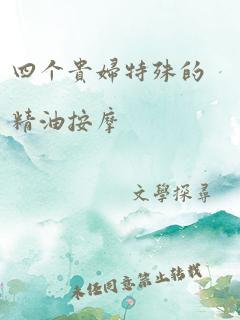 四个貴婦特殊的
精油按摩
文學探尋
未经同意禁止转载